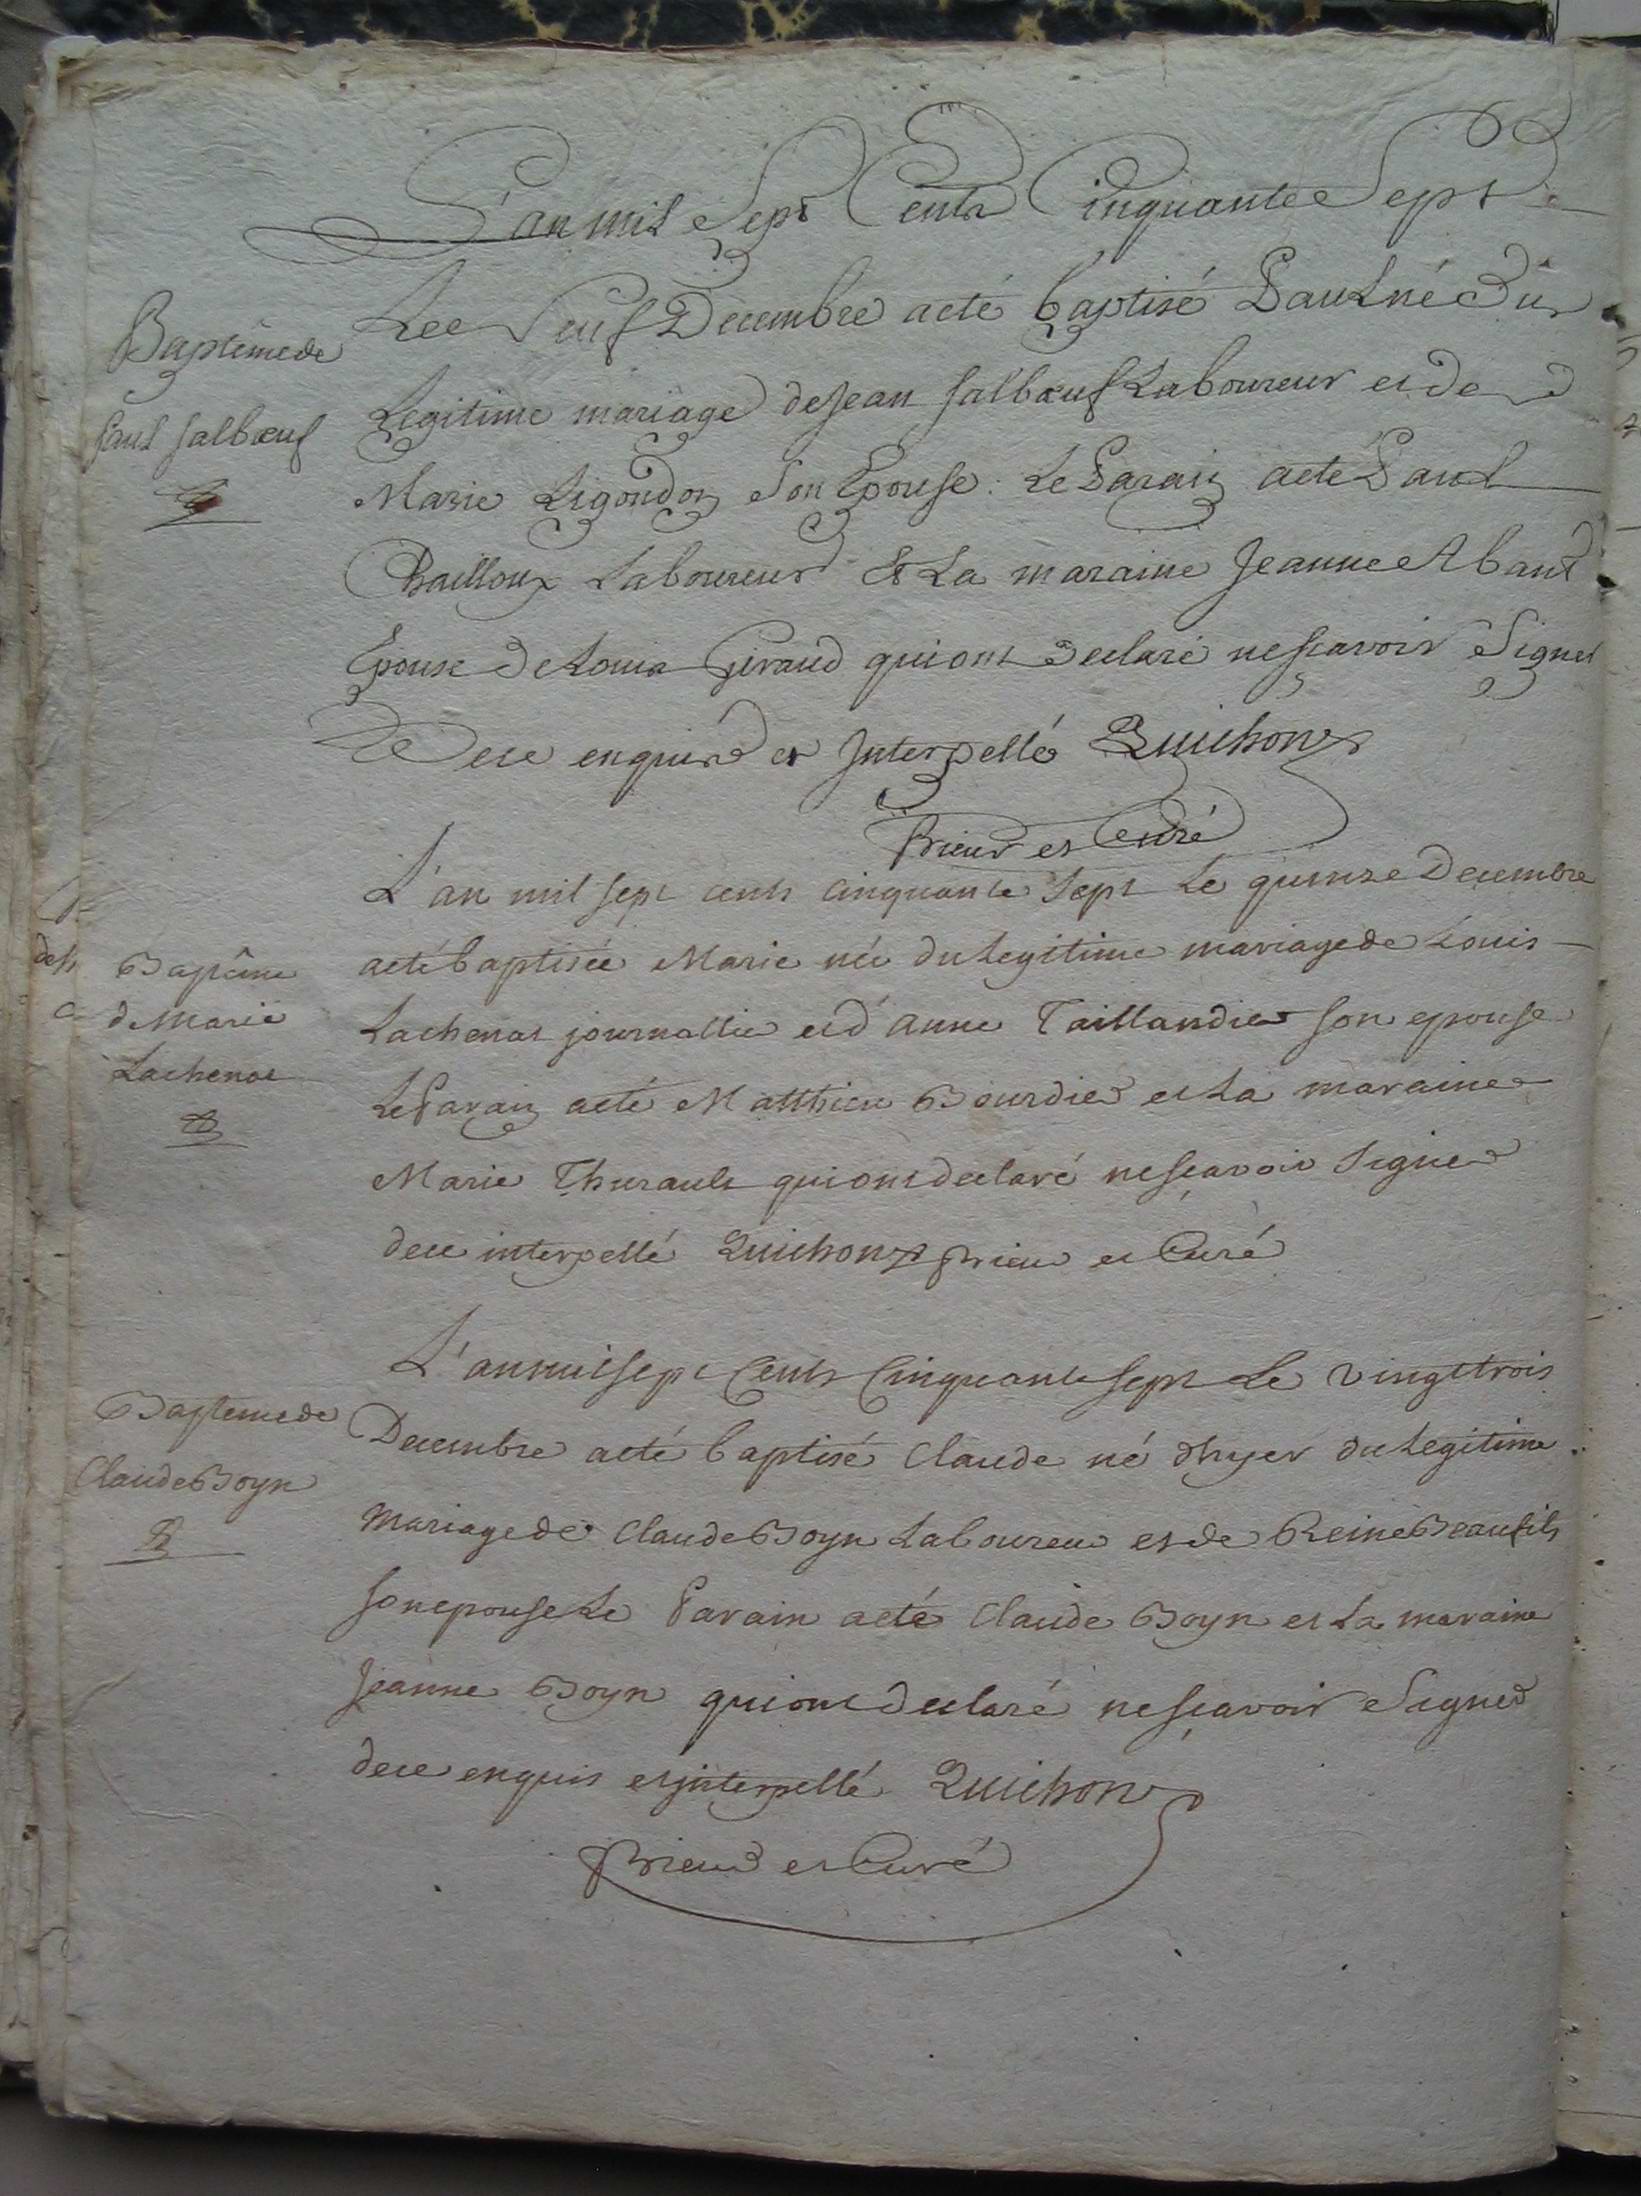 L'an mil Sept Cents Cinquante Sept
Baptême de
Paul salbœuf
Le neuf Decembre a eté baptisé Paul né Du
Legitime mariage de Jean salbœuf Laboureur et de
Marie Ligondon Son Epouse : Le Parain a eté Paul
Chailloux Laboureur & La maraine Jeanne Abant
Epouse de Louis Giraud qui ont declaré ne scavoir Signer
De ce enquis et Interpellé Quichon
Prieur et Curé
Baptême
de Marie
Lachenat
L'an mil sept cents cinquante sept Le quinze Decembre
a eté baptisée Marie née du Legitime mariage de Louis
Lachenat journallier et d'anne Taillandier son epouse
Le Parain a eté Matthieu Bourdier et La maraine
Marie Thurault qui ont declaré ne sçavoir Signer
de ce interpellé Quichon prieur et Curé
Baptême de
Claude Boyn
L'an mil sept Cents Cinquante sept Le vingt trois
Decembre a eté baptisé Claude né d'hyer du Legitime
mariage de Claude Boyn Laboureur et de Reine Beaufils
son epouse Le Parain a eté Claude Boyn et La maraine
Jeanne Boyn qui ont declaré ne sçavoir Signer
de ce enquis et interpellé Quichon
Prieur et Curé